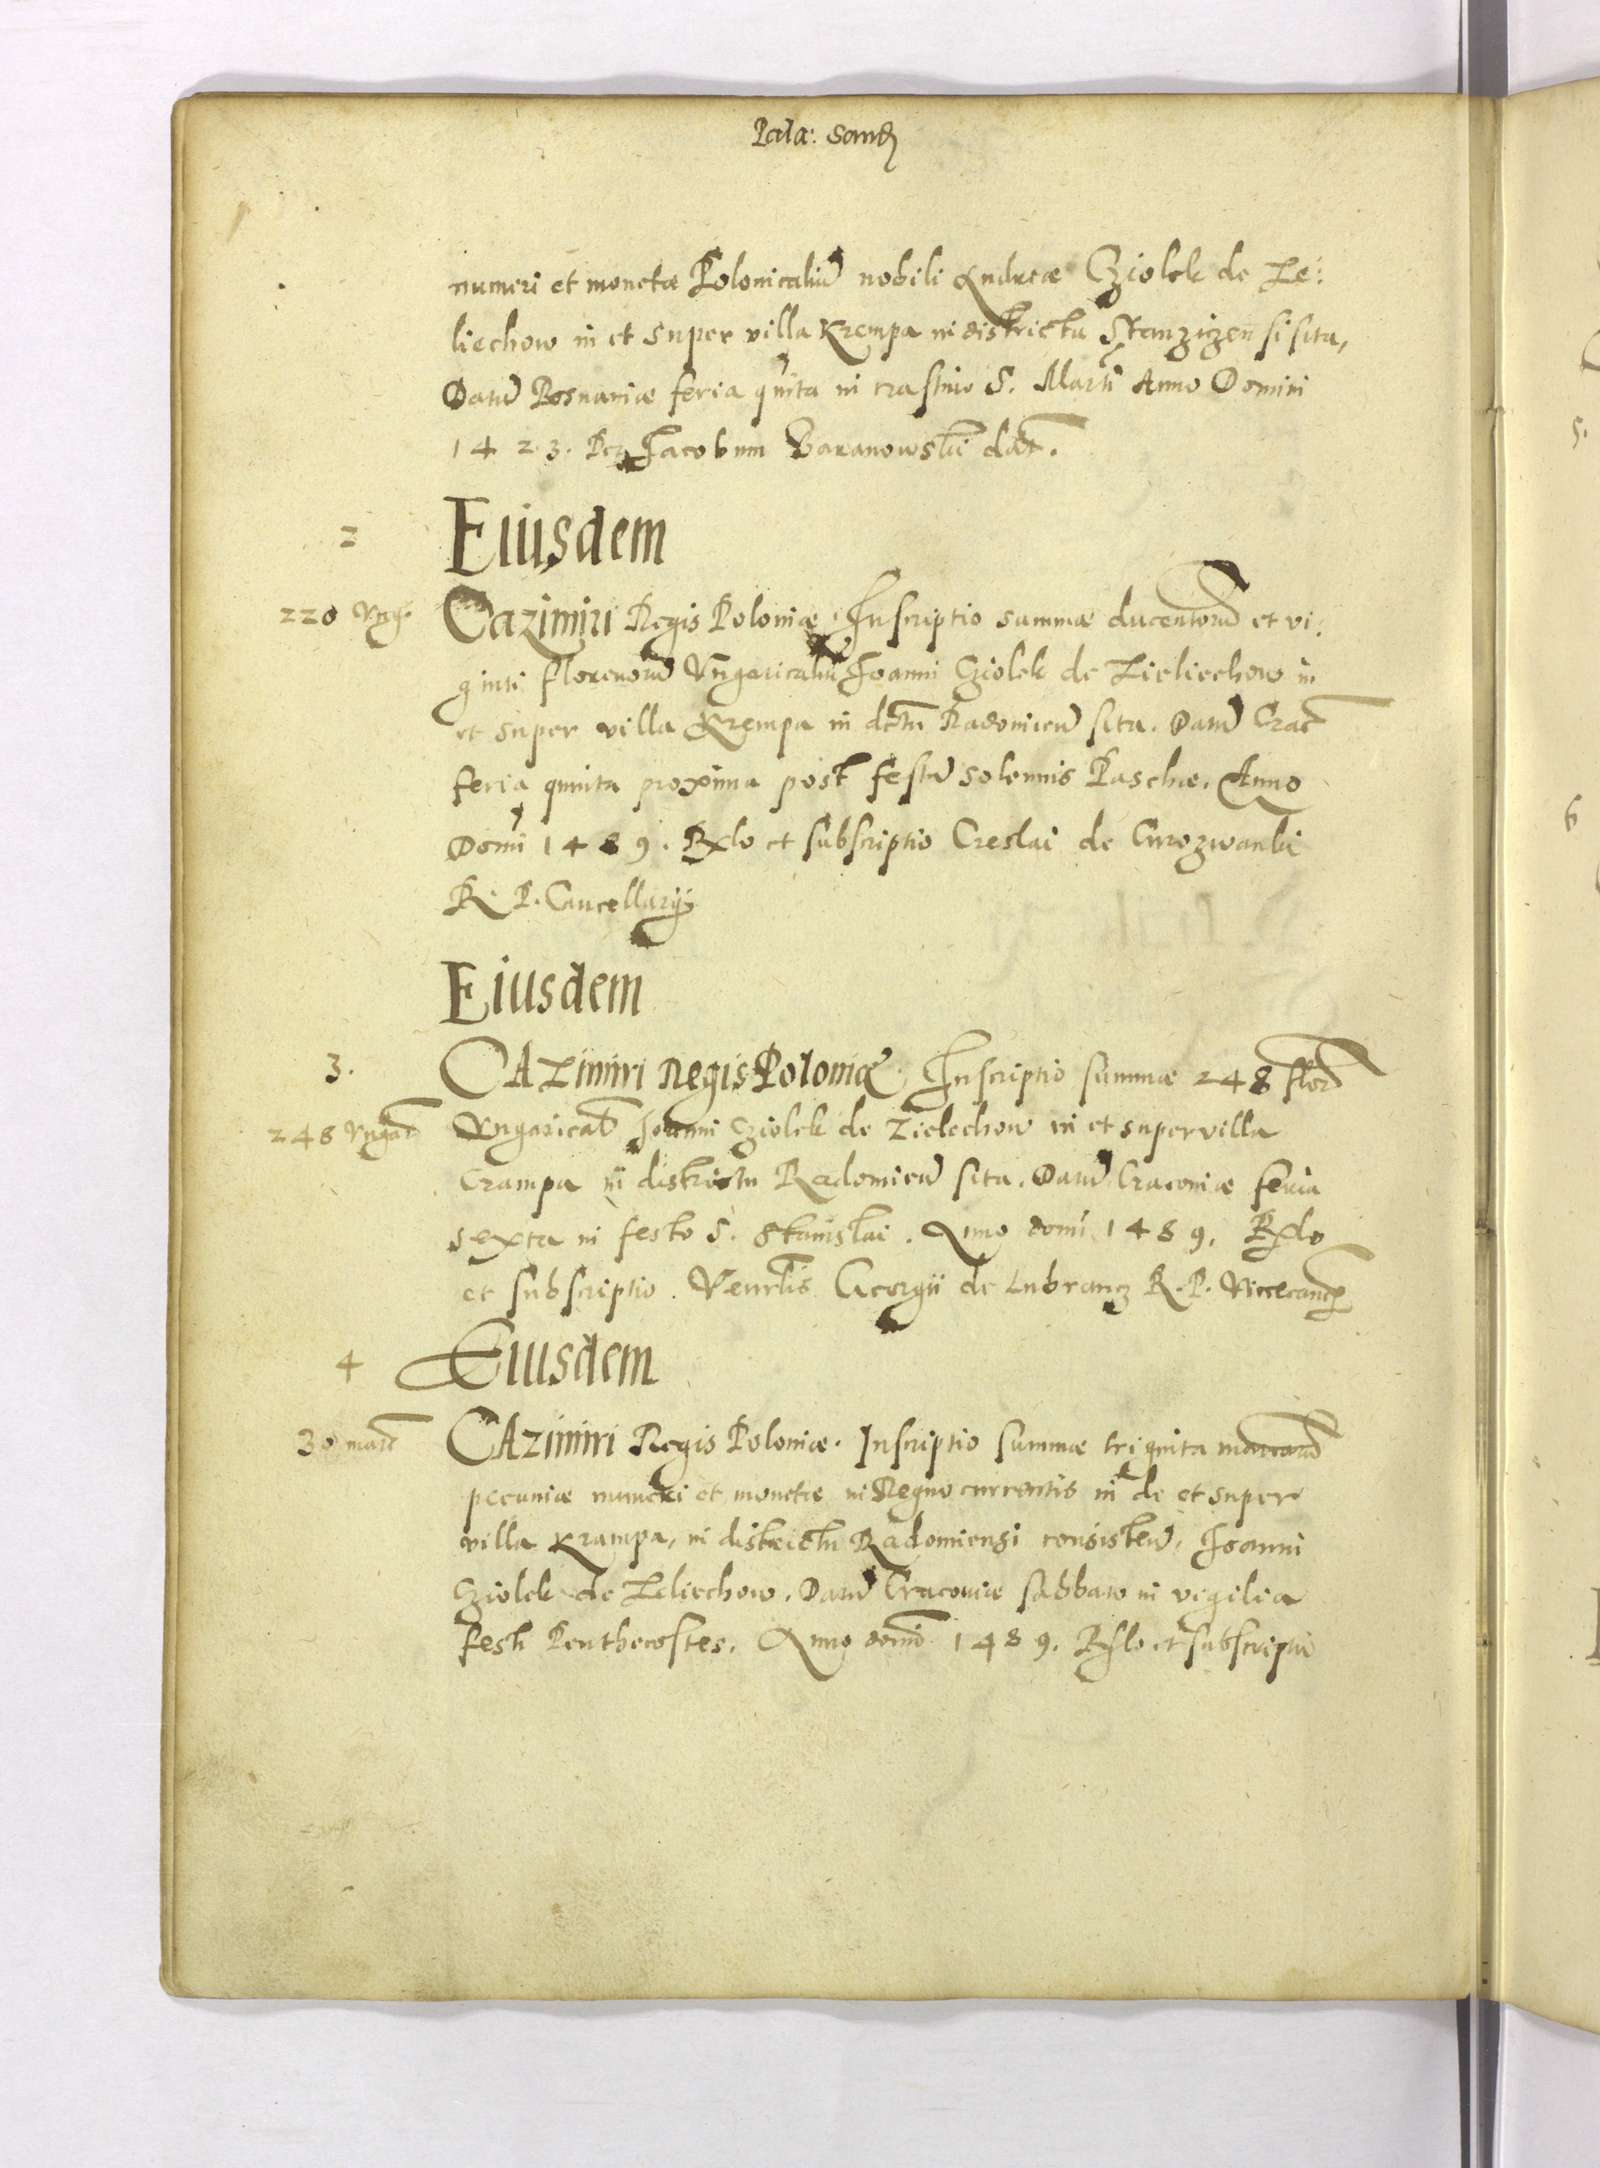 Pala: Sand
numeri et monetæ Polonicaliu nobili Andreæ Cziolek de Ze:
liechow in et super villa Krempa in districtu Stenziczen si sita,
Datu Posnaniæ feria quinta in crastino S. Marti Anno Domini
1423. Per Jacobum Baranowski dat.
2 Eiusdem
220 Vng. Cazimiri Regis Poloniæ. Inscriptio summæ ducentoru et vi:
ginti florenoru Vngaricaliu Joanni Cziolek de Zieliechow in
et super villa Krempa in dctu Radomien sita. Datu Crac
feria quinta proxima post festu solennis Paschæ. Anno
Domi 1489. Rlo et subscriptio Creslai de Curozwanki
R. P. Cancellarij
Eiusdem
3. CAZimiri Regis Poloniæ. Inscriptio summæ 248 flor
248 Vngar Vngarical Joanni Cziolek de Zielechow in et super villa
Crampa in districtu Radomien sita. Datu Cracoviæ feria
sexta in festo S. Stanislai. Anno domi 1489. Rlo
et subscriptio. Venrlis Georgii de Lubrancz R. P. Vicecanc
4 Eiusdem
30 marc CAzimiri Regis Poloniæ. Inscriptio summæ triginta marcaru
pecuniæ numeri et monetæ in Regno currentis in de et super
villa Krampa, in districtu Radomiensi consisten, Joanni
Cziolek de Zeliechow. Datu Cracoviæ sabbato in vigilia
festi Penthecostes. Anno domi 1489. Rlo et subscriptio